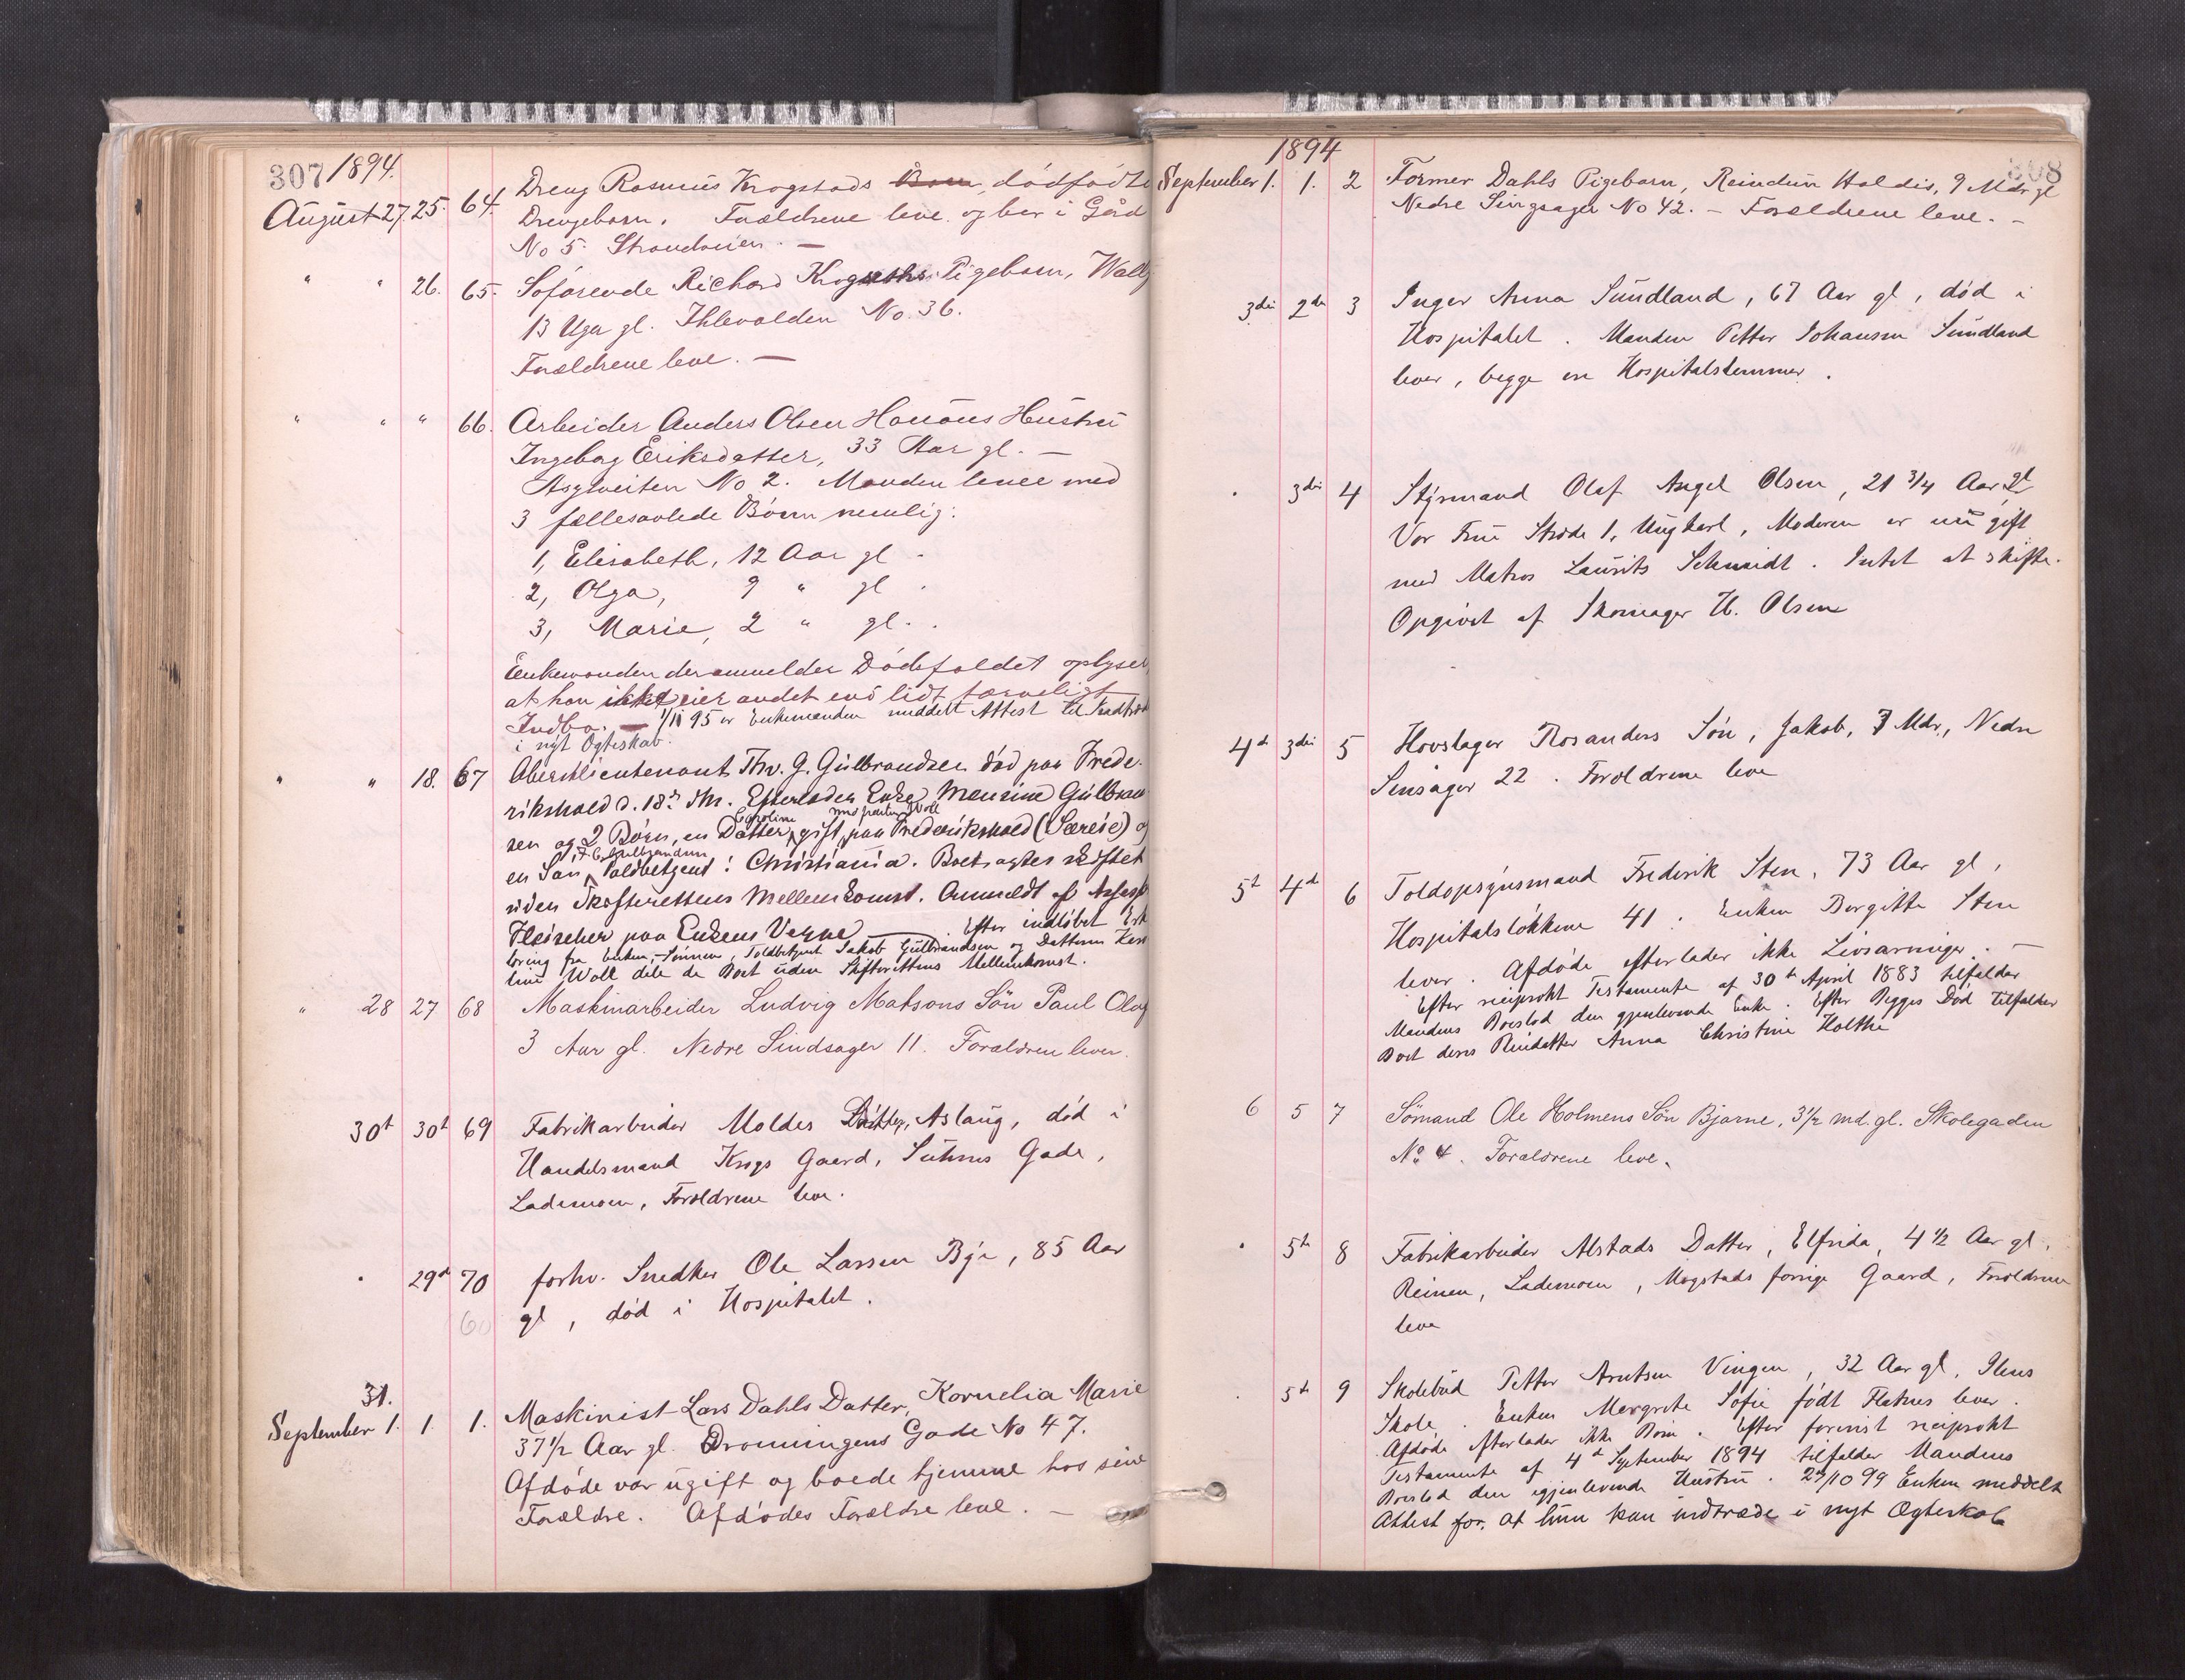 307 1894.
August 27. 25. 64. Dreng Rasmus Krogstads Barn, dödfödte
Drengebarn. Forældrene leve og bor i Gård
No 5. Strandveien. —
" " 26. 65. Söfarende Richard Pigebarn, Wally
13 Uger gl. Ihlevolden No. 36.
Forældrene leve. —
" " " 66. Arbeider Anders Olsen Hustru
Ingeborg Eriksdatter, 33 Aar gl. —
Asylveiten No 2. Manden lever med
3 fællesavlede Börn nemlig:
1, Elisabeth, 12 Aar gl -
2, Olga, 9 " gl .
3, Marie, 2 " gl. .
Enkemanden der anmelder Dödsfaldet oplyser,
at han ikke eier andet end lidt tarveligt
Indbo. — 1/11 95 er Enkemanden meddelt Attest til Indtræd
i nyt Ægteskab.
" " 18. 67 Oberstlieutenant Thv. G. Gulbrandsen död paa Frede-
rikshald d. 18de dM. Efterlader Enke Maurine Gulbran
sen og 2 Börn, en Datter, Caroline gift med Woll paa Frederikshald (Særeie) og
en Sön, J. C. Gulbrandsen Toldbetjent i Christiania. Boet agtes skiftet
uden Skifterettens Mellemkomst. Anmeldt af Assess
Fleischer paa Enkens Vegne — Efter indlöbet Erk
læring fra Enken, Sönnen, Toldbetjent Jakob Gulbrandsen og Datteren Karo
line Woll dele de Boet uden Skifterettens Mellemkomst.
" 28 27 68 Maskinarbeider Ludvig Matsons Sön Paul Olaf
3 Aar gl. Nedre Sindsager 11. Forældren lever.
30t 30t 69 Fabrikarbeider Moldes Datter, Aslaug, död i
Handelsmand Krogs Gaard, Suhms Gade,
Lademoen, Forældrene leve.
. 29d 70 forhv. Snedker Ole Larsen Bye, 85 Aar
60 gl, död i Hospitalet.
31.
September 1. 1. 1. Maskinist Lars Dahls Datter, Kornelia Marie
37½ Aar gl. Dronningens Gade No 47.
Afdöde var ugift og boede hjemme hos sine
Forældre. Afdödes Forældre leve. —
1894 308
September 1. 1. 2 Former Dahls Pigebarn, Reindun Haldis, 9 Mdr gl
Nedre Singsager No 42. - Forældrene leve. -
3die 2de 3 Inger Anna Sundland, 67 Aar gl, död i
Hospitalet. Manden Petter Johansen Sundland
lever, begge ere Hospitalslemmer.
. 3die 4 Styrmand Olaf Angel Olsen, 21 3/4 Aar gl
Vor Frue Stræde 1, Ungkarl, Moderen er nu gift
med Matros Laurits Schmidt. Intet at skifte.
Opgivet af Skomager H. Olsen
4de 3die 5 Hovslager Rosanders Sön, Jakob, 7 Mdr, Nedre
Sinsager 22. Forældrene leve
5t 4d 6 Toldopsynsmand Frederik Sten, 73 Aar gl,
Hospitalslökkene 41. Enken Bergitte Sten
lever. Afdöde efterlader ikke Livsarvinger. —
Efter reciprokt Testamente af 30te April 1883 tilfalder
Mandens Boeslod den gjenlevende Enke. Efter Begges Död tilfalder
Boet deres Pleiedatter Anna Christine Holthe
6 5 7 Sömand Ole Holmens Sön Bjarne, 3½ md. gl. Skolegaden
No 4. Forældrene leve.
. 5t 8 Fabrikarbeider Alstads Datter, Elfrida, 4½ Aar gl,
Reinen, Lademoen, Mogstads forrige Gaard, Forældrene
leve
. 5t 9 Skolebud Petter Arntsen Vingen, 32 Aar gl, Ilens
Skole. Enken Margrete Sofie födt Flatnes lever.
Afdöde efterlader ikke Börn. Efter forevist reciprokt
Testamente af 4de September 1894 tilfalder Mandens
Boeslod den igjenlevende Hustru. 27/10 99 Enken meddelt
Attest for, at hun kan indtræde i nyt Ægteskab